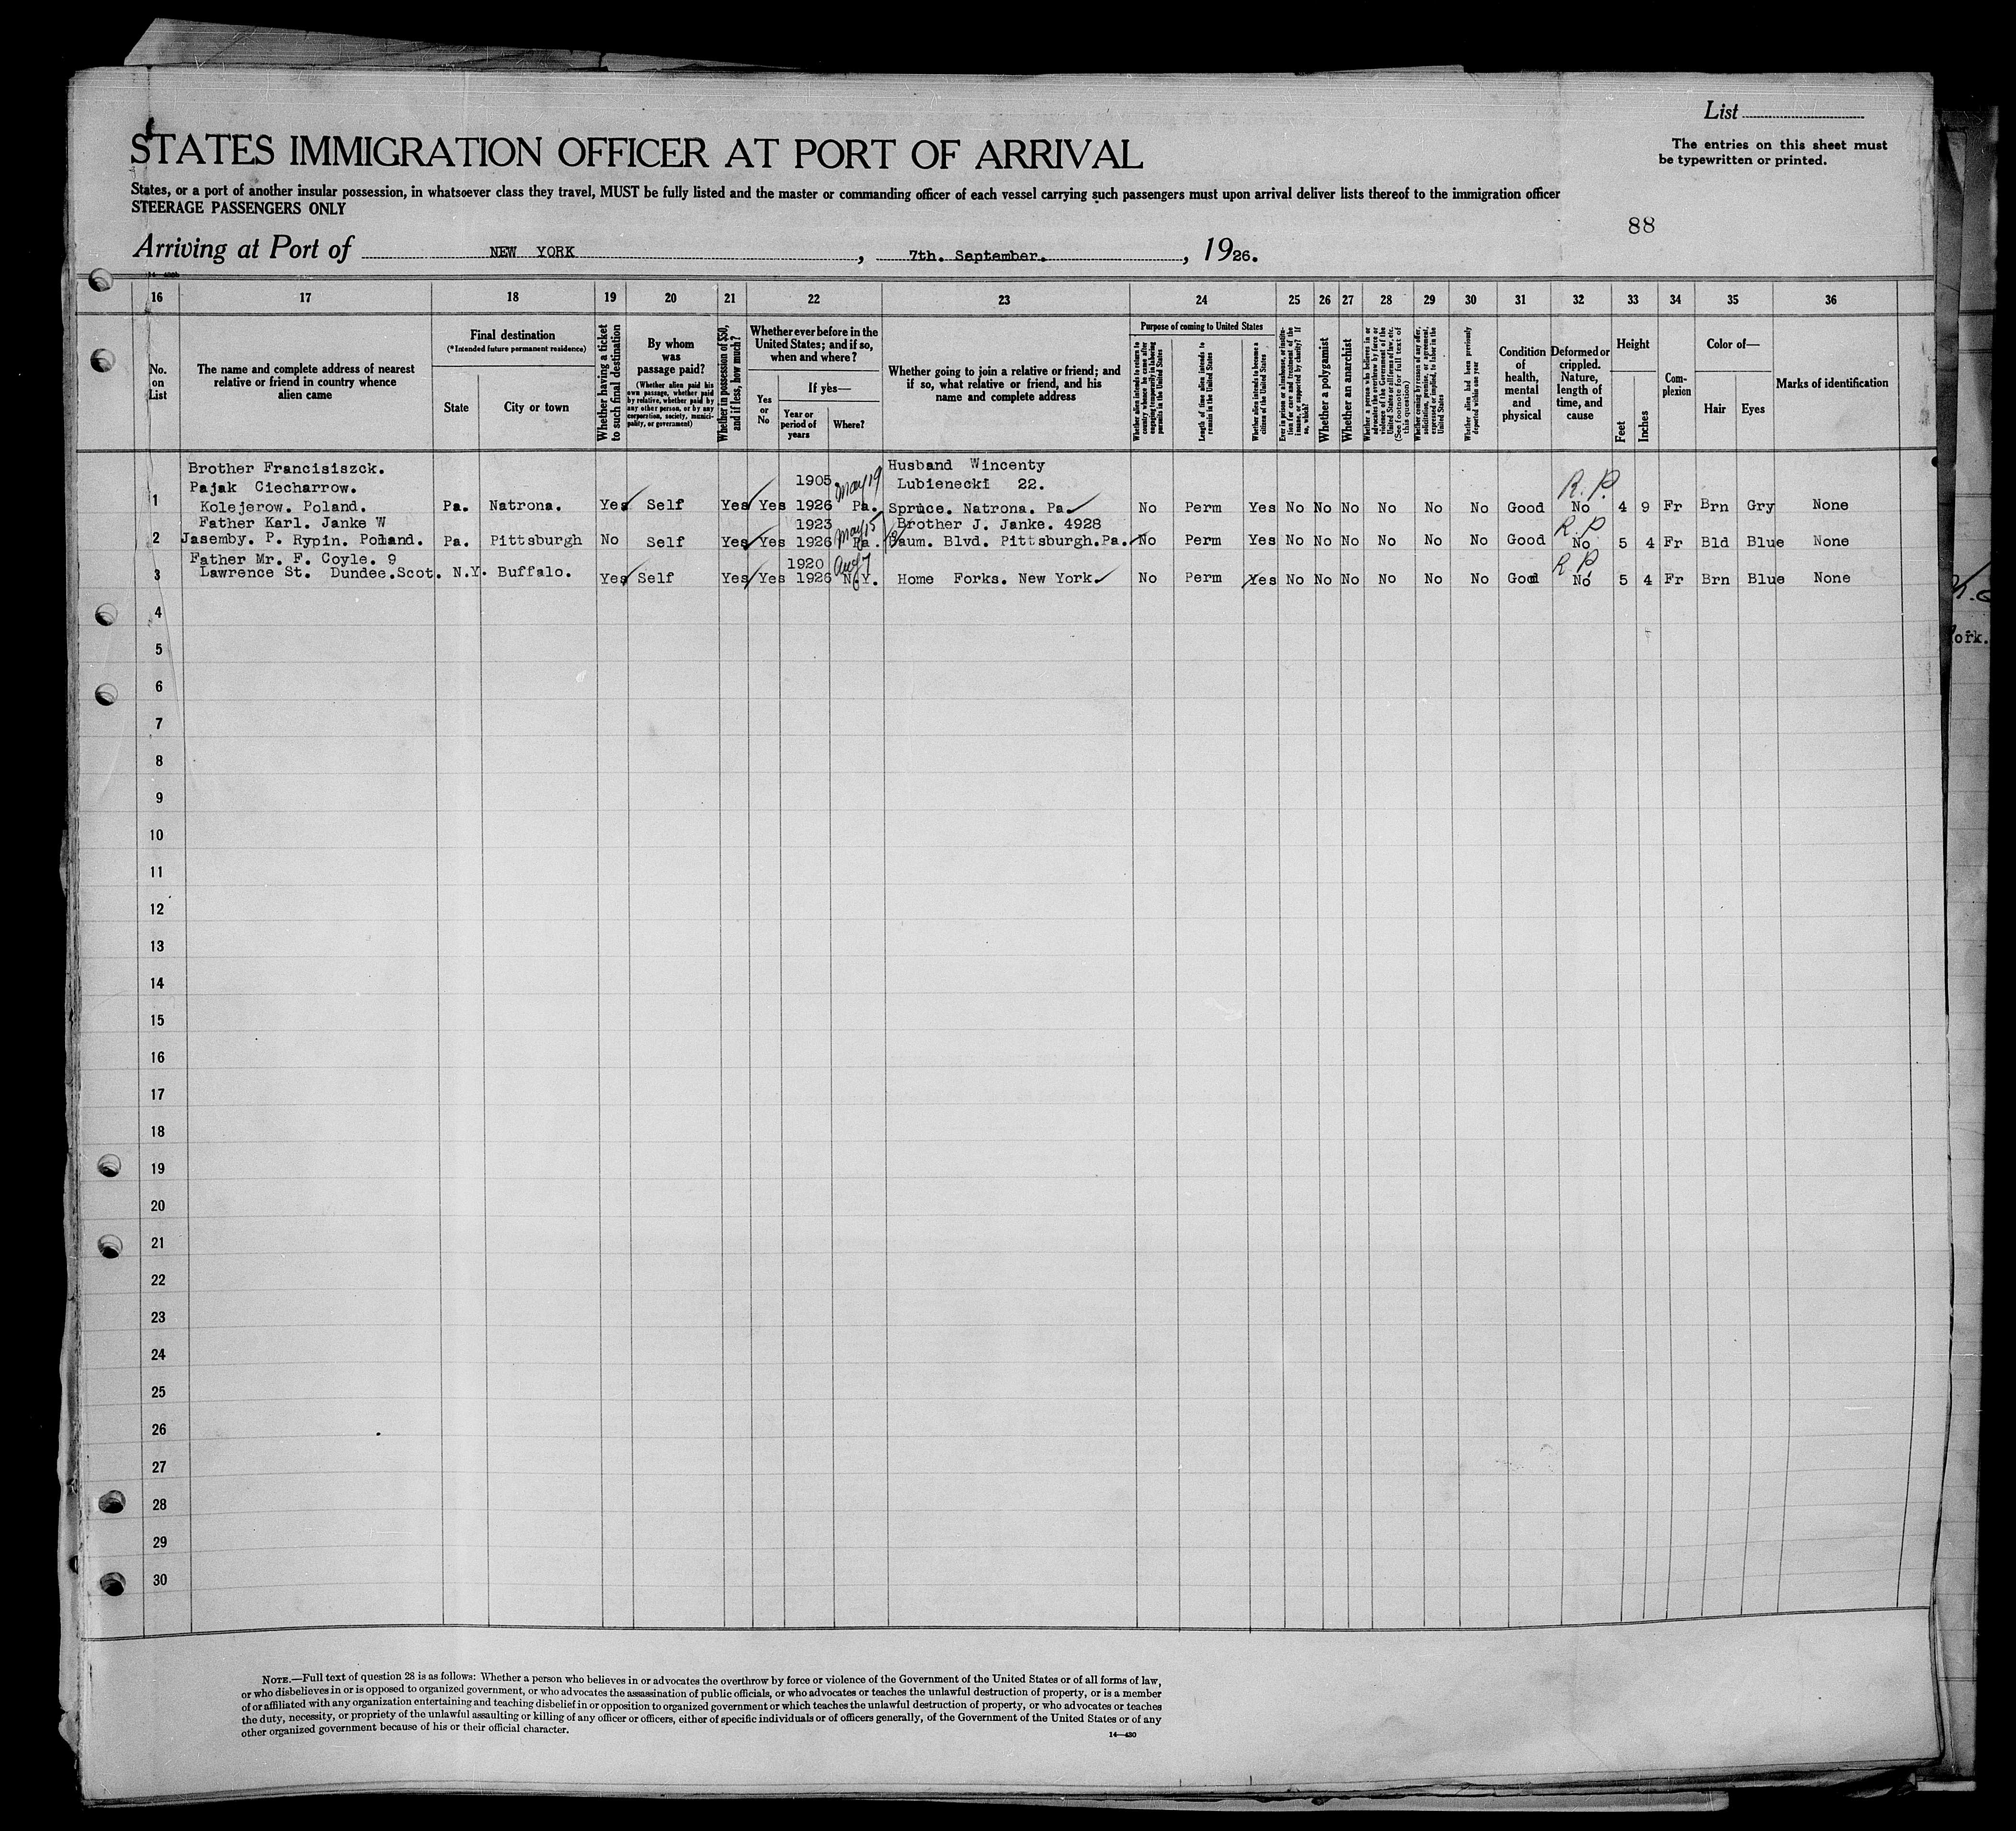 List
The entries on this sheet must
be typewritten or printed.
STATES IMMIGRATION OFFICER AT PORT OF ARRIVAL
States, or a port of another insular possession, in whatsoever class they travel, MUST be fully listed and the master or commanding officer of each vessel carrying such passengers must upon arrival deliver lists thereof to the immigration officer
STEERAGE PASSENGERS ONLY
88
Arriving at Port of NEW YORK , 7th. September. , 1926.
16 17 18 19 20 21 22 23 24 25 26 27 28 29 30 31 32 33 34 35 36
No. on List
The name and complete address of nearest relative or friend in country whence alien came
Final destination
(*Intended future permanent residence)
State
City or town
Whether having a ticket to such final destination
By whom was passage paid?
(Whether alien paid his own passage, whether paid by relative, whether paid by any other person, or by any corporation, society, municipality, or government)
Whether in possession of $50, and if less, how much?
Whether ever before in the United States; and if so, when and where?
Yes or No
If yes—
Year or period of years
Where?
Whether going to join a relative or friend; and if so, what relative or friend, and his name and complete address
Purpose of coming to United States
Whether alien intends to return to country whence he came after engaging temporarily in laboring pursuits in the United States
Length of time alien intends to remain in the United States
Whether alien intends to become a citizen of the United States
Ever in prison or almshouse, or institution for care and treatment of the insane, or supported by charity? If so, which?
Whether a polygamist
Whether an anarchist
Whether a person who believes in or advocates the overthrow by force or violence of the Government of the United States or all forms of law, etc. (See footnote for full text of this question)
Whether coming by reason of any offer, solicitation, promise, or agreement, expressed or implied, to labor in the United States
Whether alien had been previously deported within one year
Condition of health, mental and physical
Deformed or crippled. Nature, length of time, and cause
Height
Feet
Inches
Complexion
Color of—
Hair
Eyes
Marks of identification
Brother Francisiszck. Husband Wincenty
Pajak Ciecharrow. 1905 May 19 Lubienecki 22. R.P.
1 Kolejerow. Poland. Pa. Natrona. Yes Self Yes Yes 1926 Pa. Spruce. Natrona. Pa No Perm Yes No No No No No No Good No 4 9 Fr Brn Gry None
Father Karl. Janke W 1923 May 15 Brother J. Janke. 4928 R.P.
2 Jasemby. P. Rypin. Poland. Pa. Pittsburgh No Self Yes Yes 1926 Pa. Baum. Blvd. Pittsburgh.Pa. No Perm Yes No No No No No No Good No 5 4 Fr Bld Blue None
Father Mr. F. Coyle. 9 1920 Aug 7 R P.
3 Lawrence St. Dundee.Scot. N.Y. Buffalo. Yes Self Yes Yes 1926 N.Y. Home Forks. New York. No Perm Yes No No No No No No Good No 5 4 Fr Brn Blue None
4
5
6
7
8
9
10
11
12
13
14
15
16
17
18
19
20
21
22
23
24
25
26
27
28
29
30
ork.
NOTE.—Full text of question 28 is as follows: Whether a person who believes in or advocates the overthrow by force or violence of the Government of the United States or of all forms of law,
or who disbelieves in or is opposed to organized government, or who advocates the assassination of public officials, or who advocates or teaches the unlawful destruction of property, or is a member
of or affiliated with any organization entertaining and teaching disbelief in or opposition to organized government or which teaches the unlawful destruction of property, or who advocates or teaches
the duty, necessity, or propriety of the unlawful assaulting or killing of any officer or officers, either of specific individuals or of officers generally, of the Government of the United States or of any
other organized government because of his or their official character.
14—430